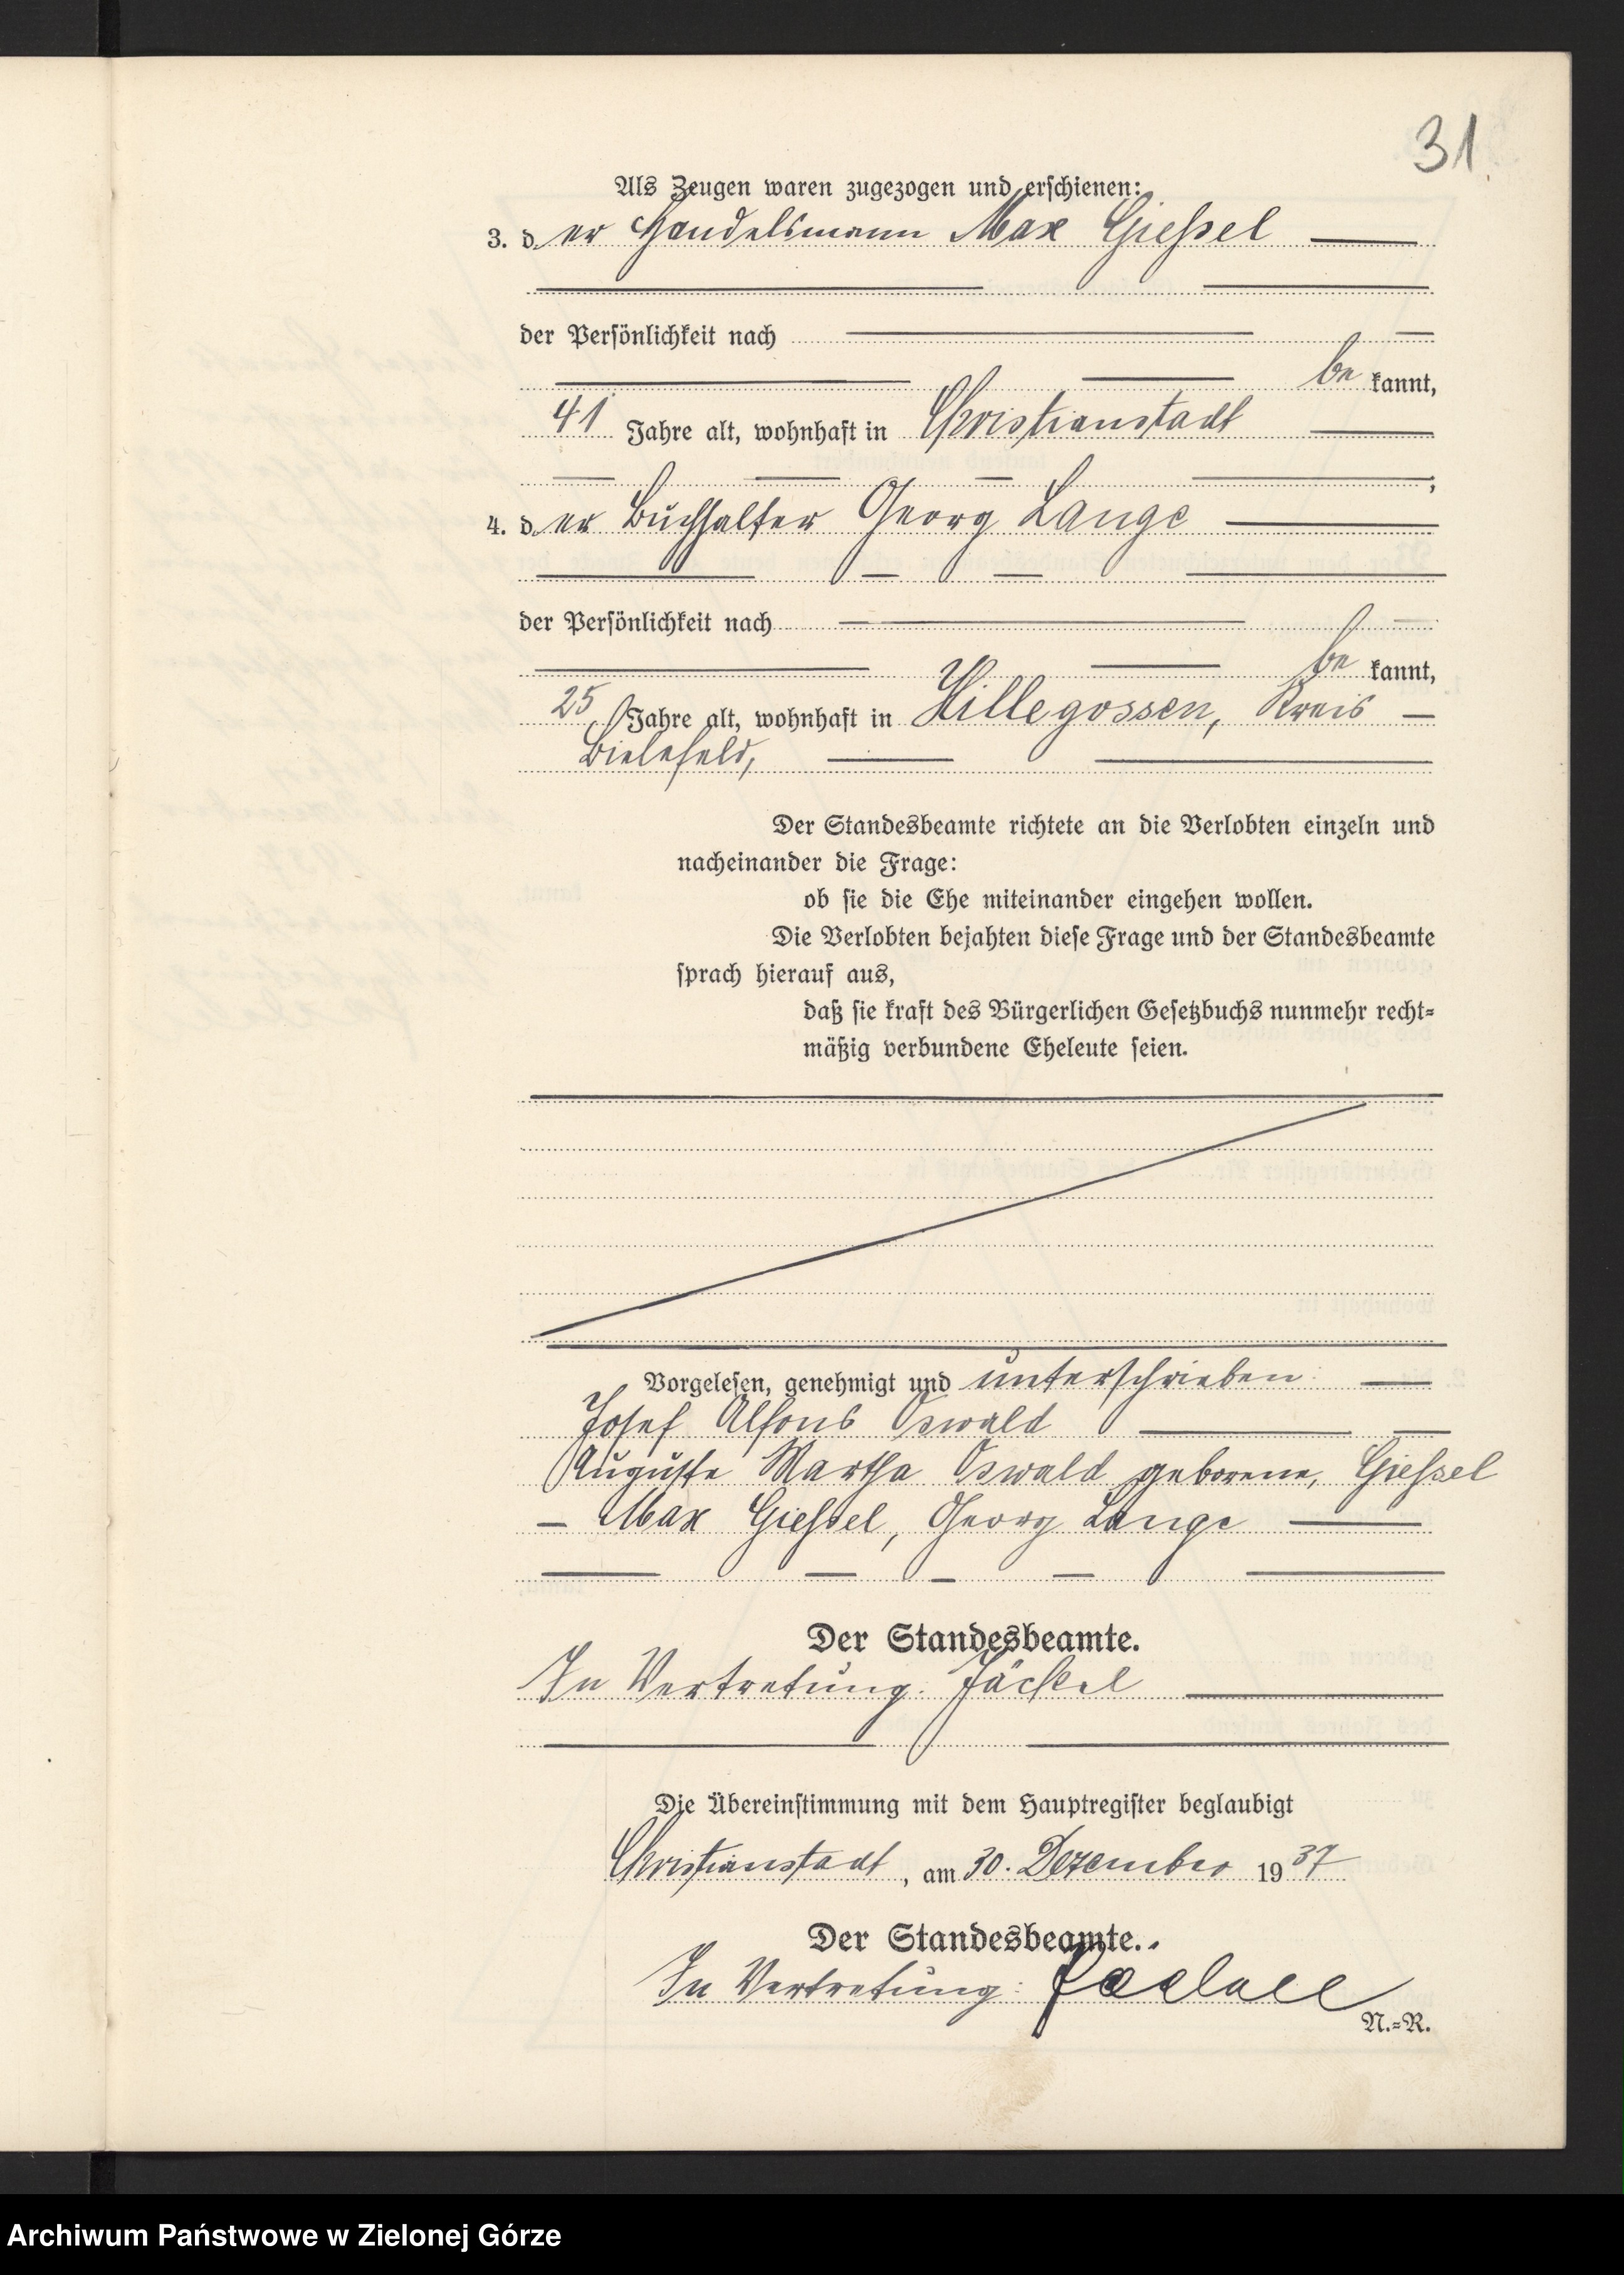 31
Als Zeugen waren zugezogen und erschienen:
3. der Handelsmann Max Gießel
der Persönlichkeit nach
be kannt,
41 Jahre alt, wohnhaft in Christianstadt
;
4. der Buchhalter Georg Lange
der Persönlichkeit nach
be kannt,
25 Jahre alt, wohnhaft in Hillegossen, Kreis
Bielefeld,
Der Standesbeamte richtete an die Verlobten einzeln und
nacheinander die Frage:
ob sie die Ehe miteinander eingehen wollen.
Die Verlobten bejahten diese Frage und der Standesbeamte
sprach hierauf aus,
daß sie kraft des Bürgerlichen Gesetzbuchs nunmehr recht-
mäßig verbundene Eheleute seien.
Vorgelesen, genehmigt und unterschrieben:
Josef Alfons Oswald
Auguste Martha Oswald geborene, Gießel
– Max Gießel, Georg Lange
Der Standesbeamte.
In Vertretung: Jäckel
Die Übereinstimmung mit dem Hauptregister beglaubigt
Christianstadt, am 30. Dezember 1937
Der Standesbeamte.
In Vertretung:
N.-R.
Archiwum Państwowe w Zielonej Górze